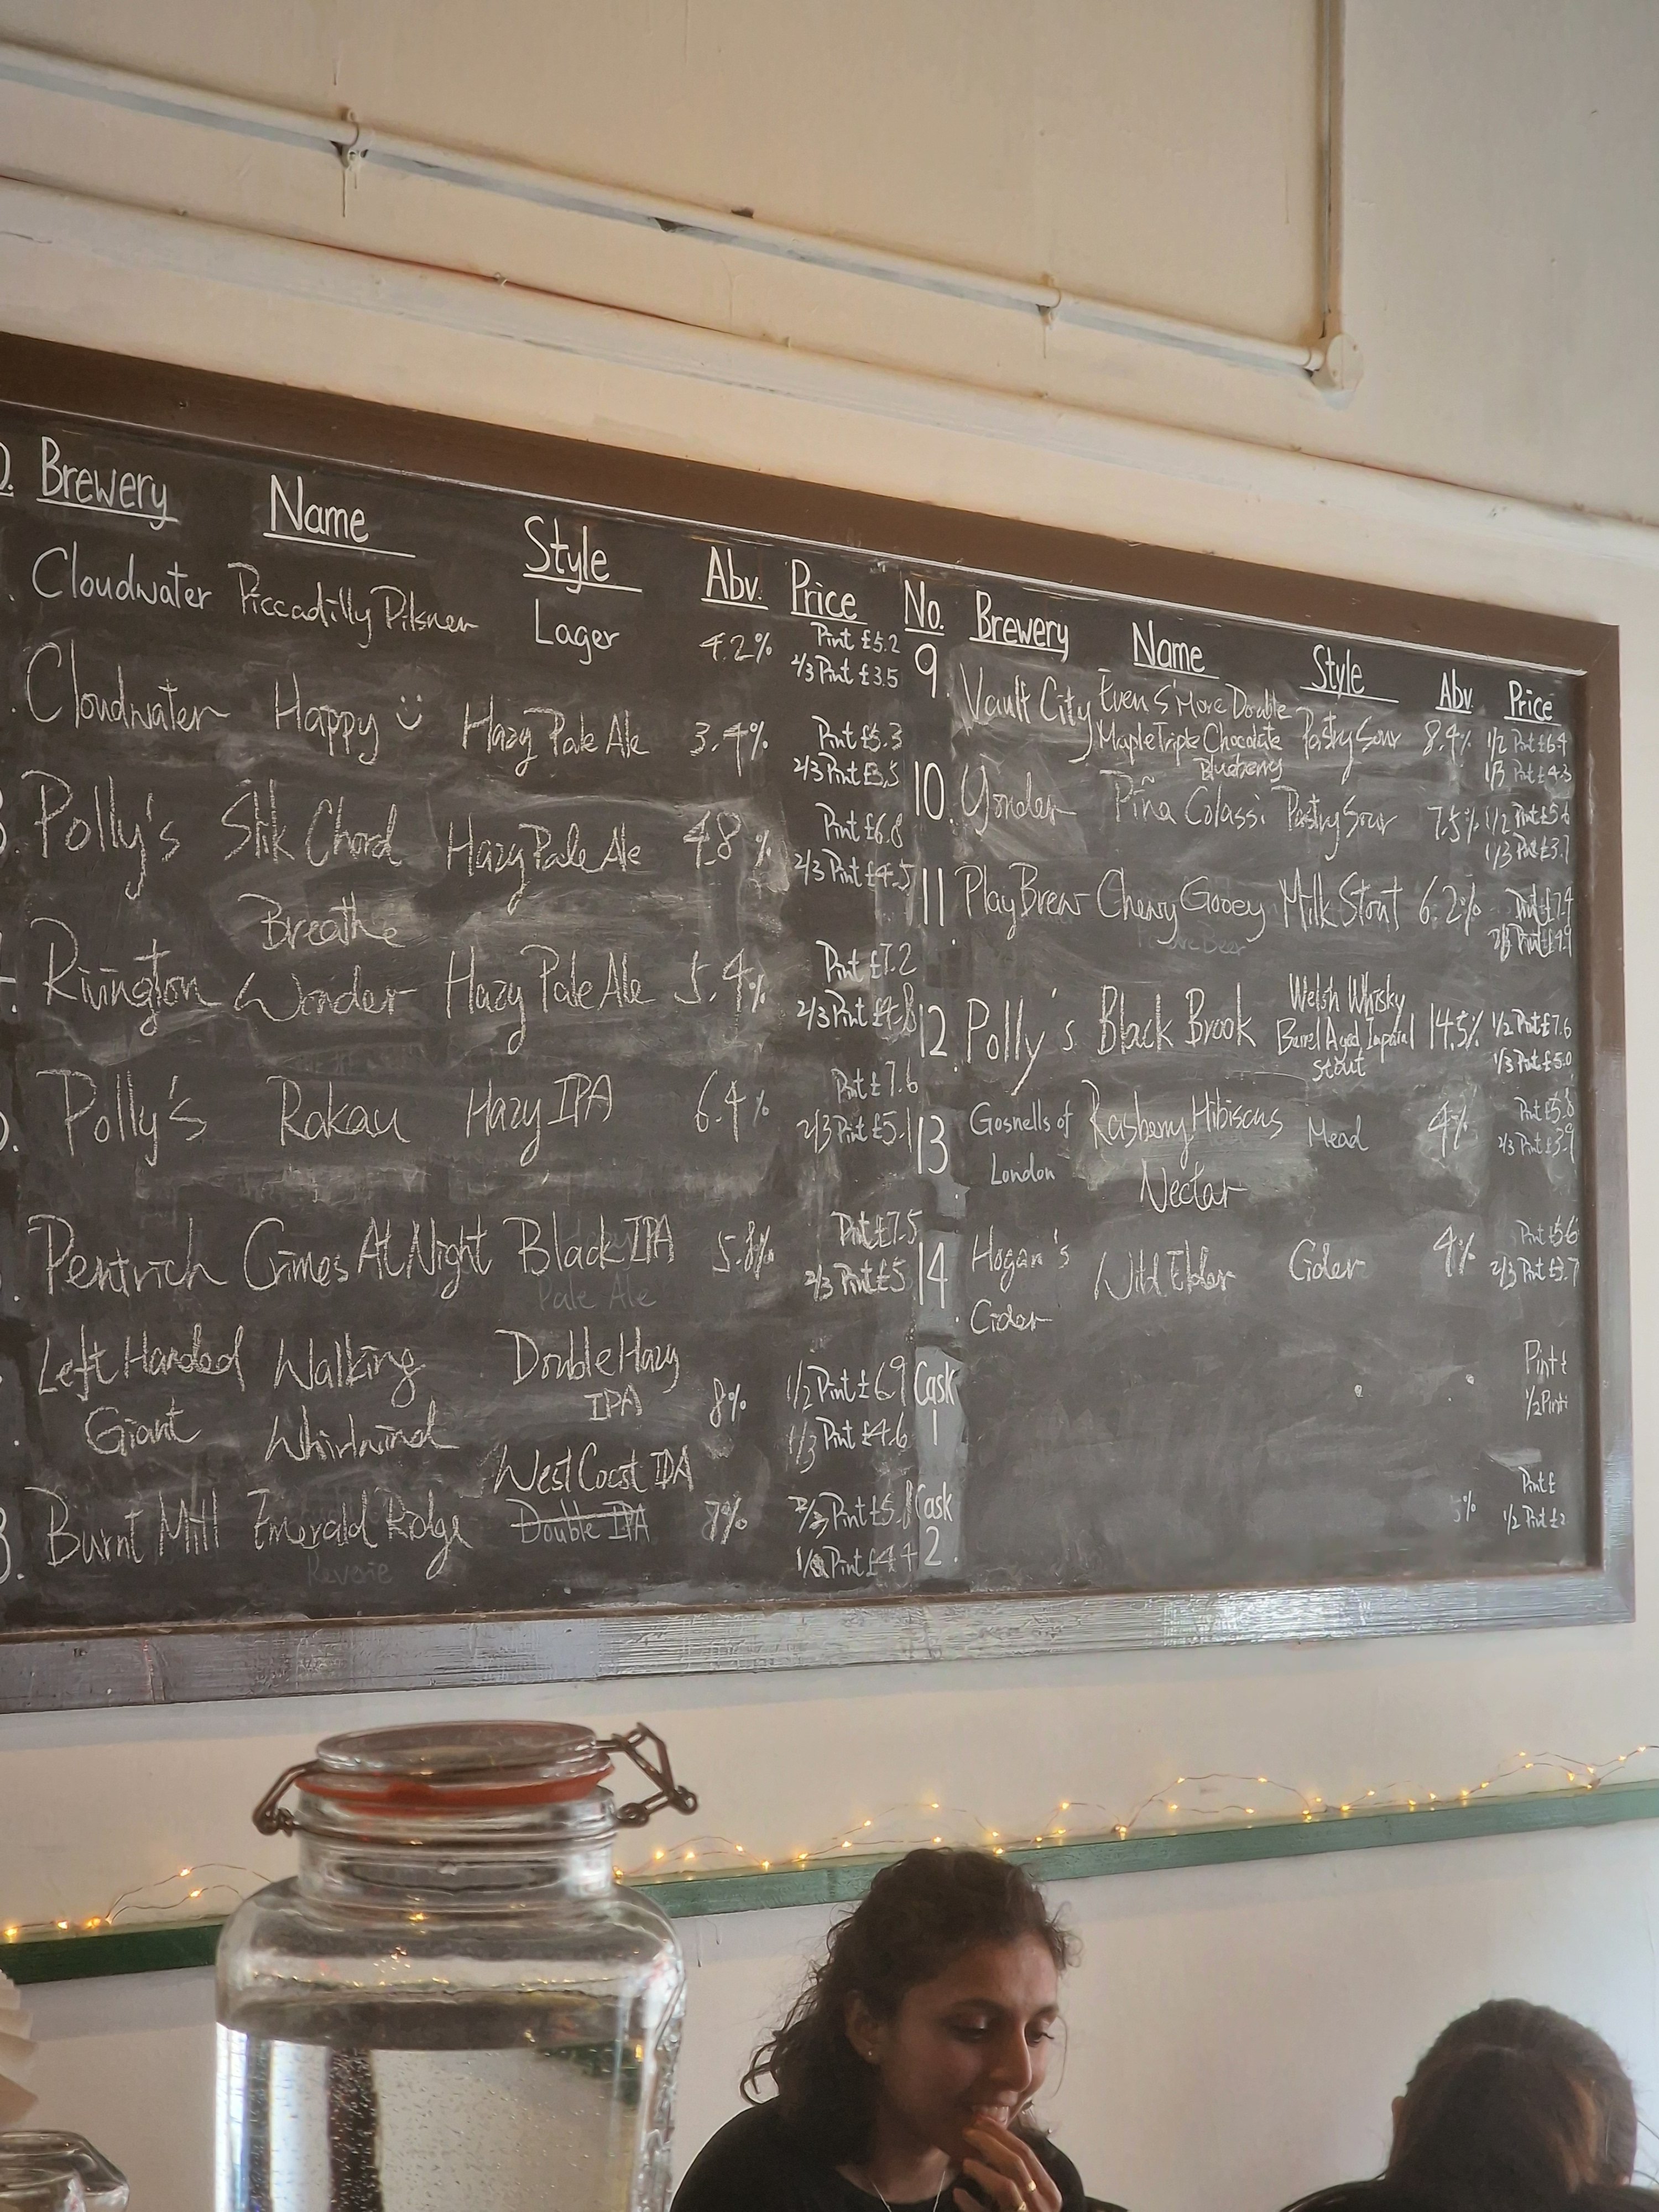 Brewery Name Style Abv. Price
Cloudwater Piccadilly Pilsner Lager 4.2% Pint £5.2
2/3 Pint £3.5
Cloudwater Happy Hazy Pale Ale 3.4% Pint £5.3
2/3 Pint £3.5
Polly's Stik Chord Hazy Pale Ale 4.8% Pint £6.8
2/3 Pint £4.5
Breathe
Rivington Wonder Hazy Pale Ale 5.4% Pint £7.2
2/3 Pint £4.8
Polly's Rakau Hazy IPA 6.4% Pint £7.6
2/3 Pint £5.1
Pentrich Crimes At Night Black IPA 5.8% Pint £7.5
Pale Ale 2/3 Pint £5
Left Handed Walking Double Hazy
Giant Whirlwind IPA 8% 1/2 Pint £6.9
1/3 Pint £4.6
West Coast IPA
Burnt Mill Emerald Ridge Double IPA 7% 2/3 Pint £5.8
Reverie Pint £4
No. Brewery Name Style Abv Price
9. Vault City Even S'More Double
Maple Triple Chocolate Pastry Sour 8.4% 1/2 Pint £6.4
Blueberry 1/3 Pint £4.3
10. Yonder Piña Colassi Pastry Sour 7.5% 1/2 Pint £5.6
1/3 Pint £3.7
11. Play Brew Chewy Gooey Milk Stout 6.2% Pint £7.4
2/3 Pint £4.9
12. Polly's Black Brook Welsh Whisky
Barrel Aged Imperial 14.5% 1/2 Pint £7.6
Stout 1/3 Pint £5.0
13. Gosnells of Rasberry Hibiscus Mead 4% Pint £5.8
London Nectar 2/3 Pint £3.9
14. Hogan's Wild Elder Cider 4% Pint £5.6
Cider 2/3 Pint £3.7
Cask Pint £
1. 1/2 Pint
Cask Pint £
2. % 1/2 Pint £2